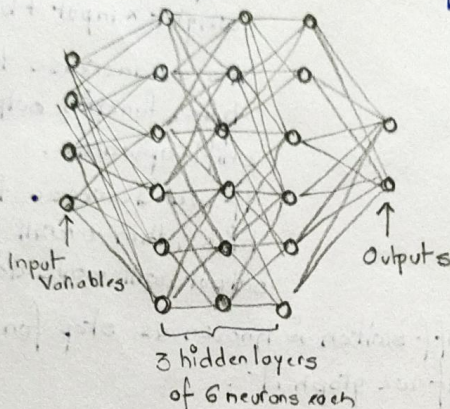 Input
Variables
Outputs
3 hidden layers
of 6 neurons each